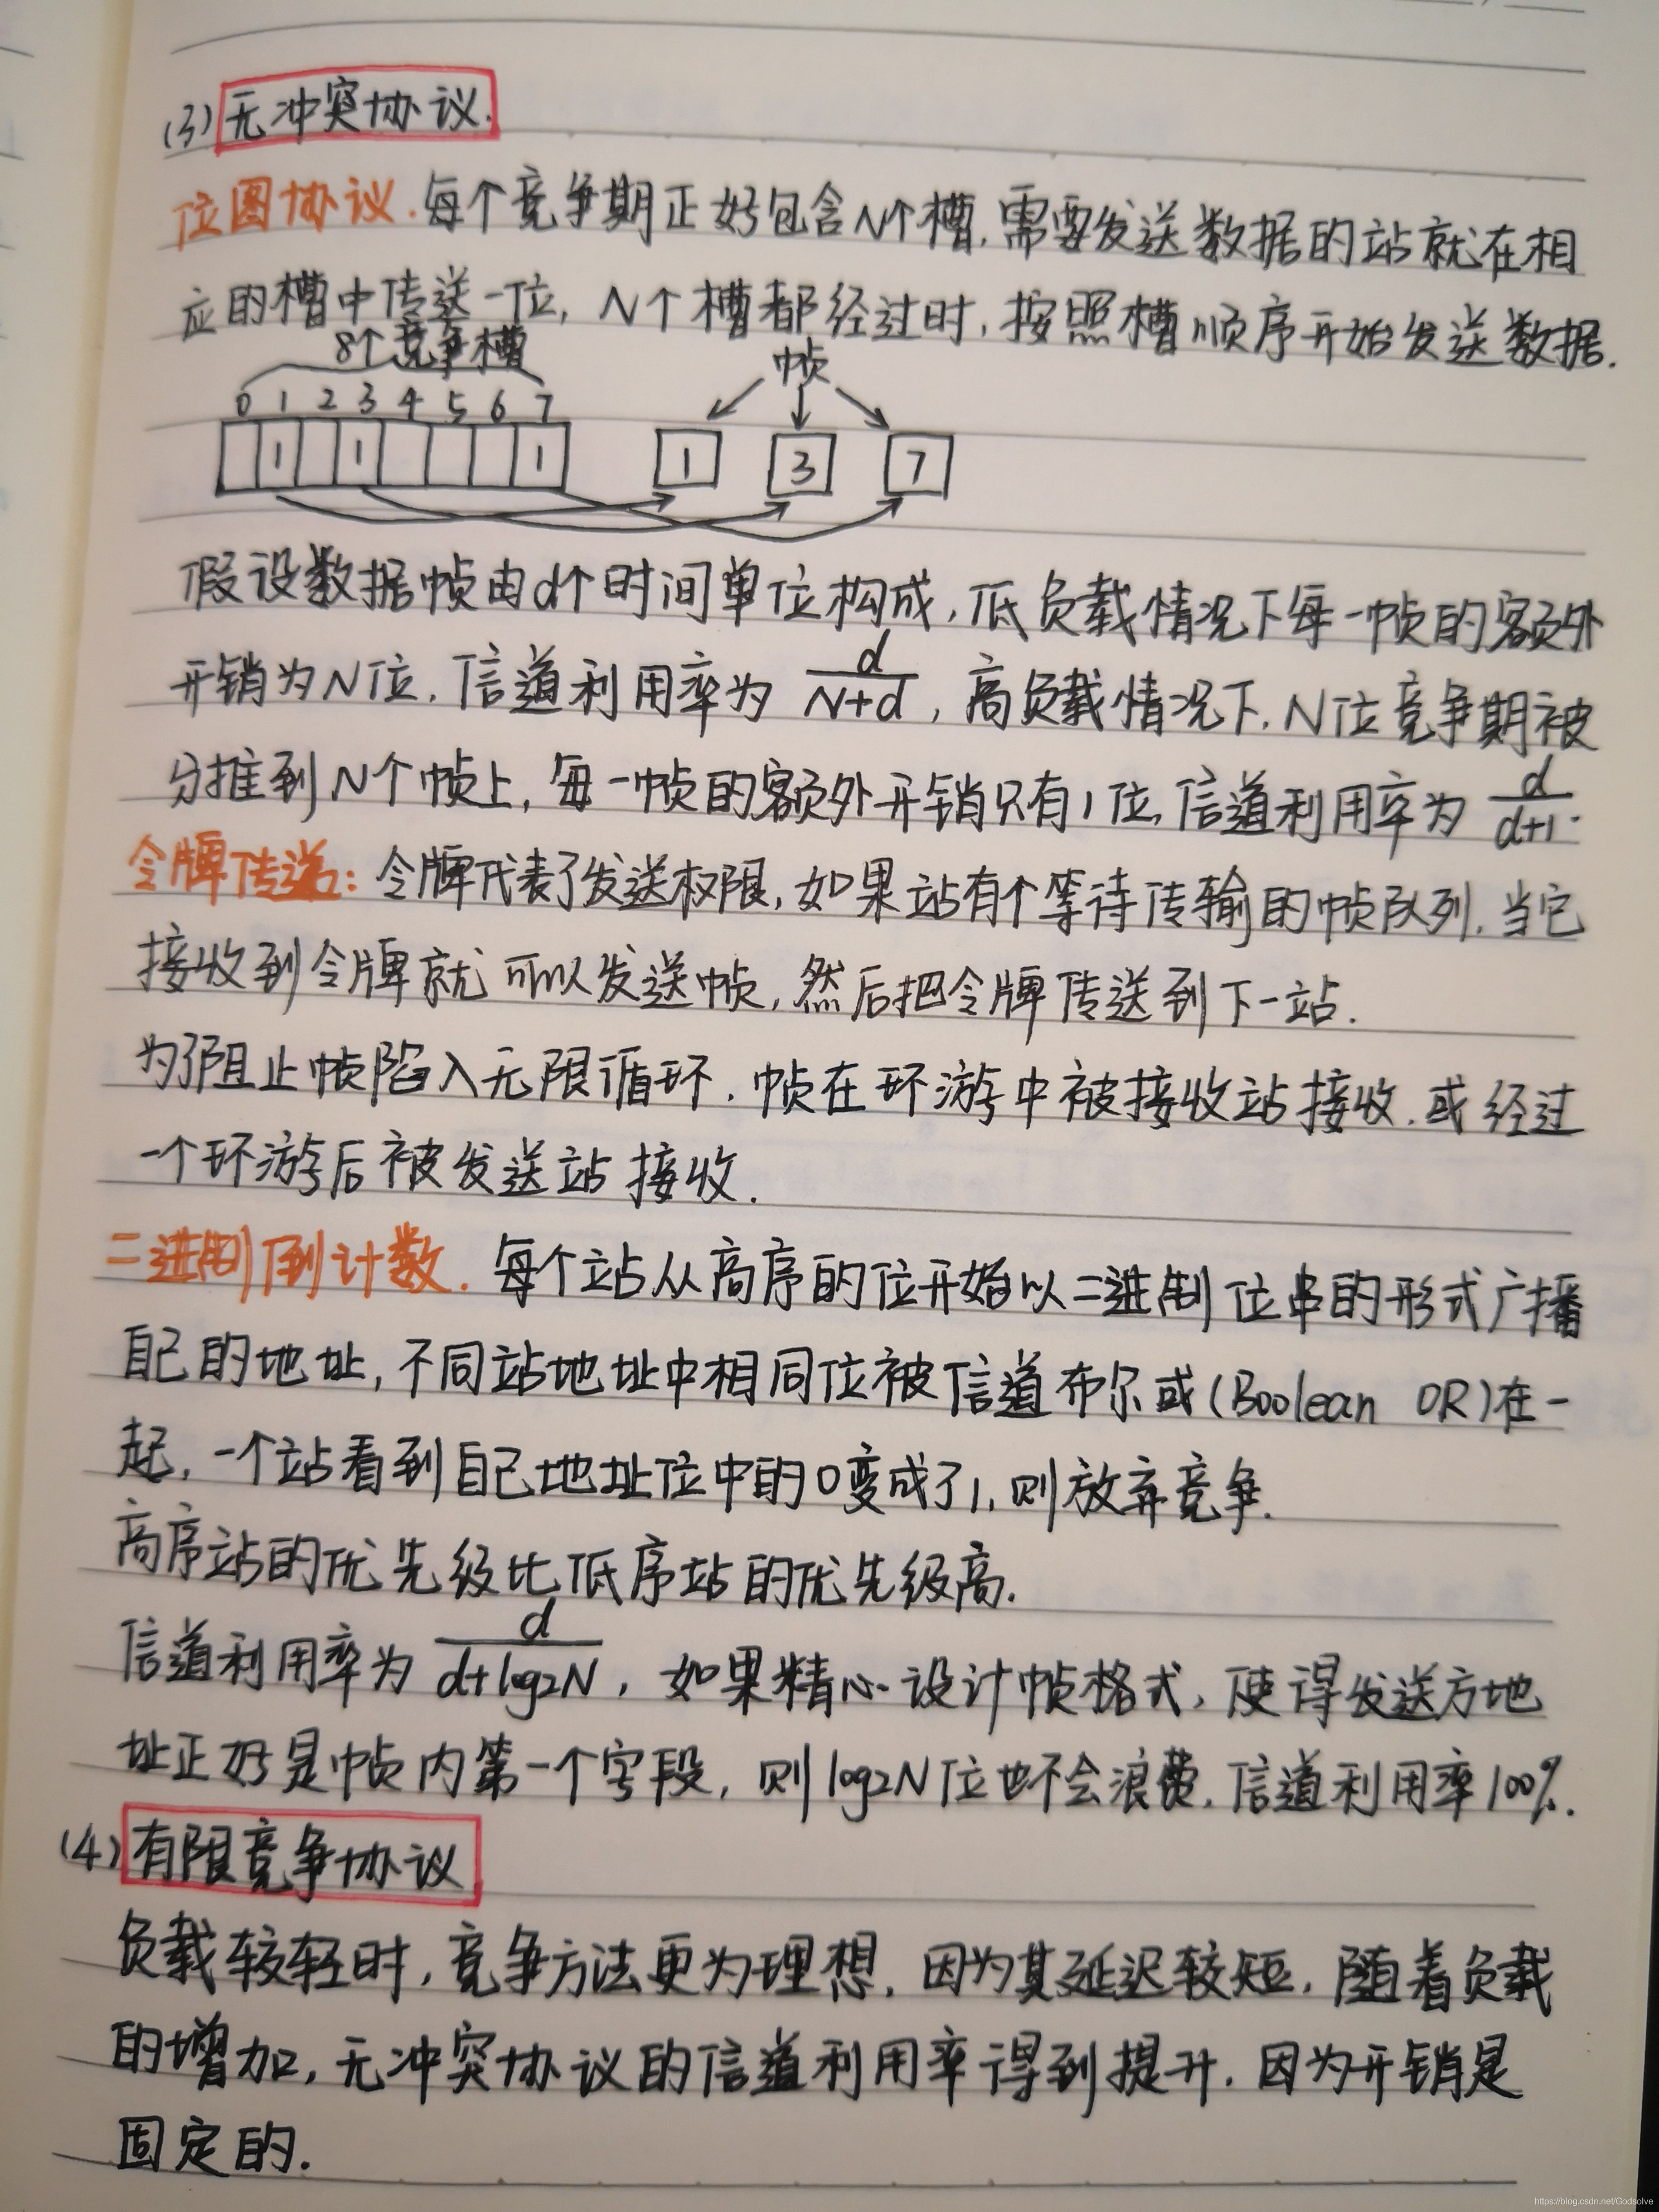 (3) 无冲突协议.
位图协议.每个竞争期正好包含N个槽,需要发送数据的站就在相
应的槽中传送一位, N个槽都经过时,按照槽顺序开始发送数据.
8个竞争槽 帧
0 1 2 3 4 5 6 7
1 1 1 1 3 7
假设数据帧由d个时间单位构成,低负载情况下每一帧的额外
开销为N位,信道利用率为 d/(N+d) ,高负载情况下,N位竞争期被
分摊到N个帧上,每一帧的额外开销只有1位,信道利用率为 d/(d+1).
令牌传递: 令牌代表了发送权限,如果站有个等待传输的帧队列,当它
接收到令牌就可以发送帧,然后把令牌传送到下一站.
为了阻止帧陷入无限循环,帧在环游中被接收站接收,或经过
一个环游后被发送站接收.
二进制倒计数. 每个站从高序的位开始以二进制位串的形式广播
自己的地址,不同站地址中相同位被信道布尔或(Boolean OR)在一
起,一个站看到自己地址位中的0变成了1,则放弃竞争.
高序站的优先级比低序站的优先级高.
信道利用率为 d/(d+log2N) ,如果精心设计帧格式,使得发送方地
址正好是帧内第一个字段,则log2N位也不会浪费,信道利用率100%.
(4) 有限竞争协议
负载较轻时,竞争方法更为理想,因为其延迟较短,随着负载
的增加,无冲突协议的信道利用率得到提升,因为开销是
固定的.
https://blog.csdn.net/Godsolve